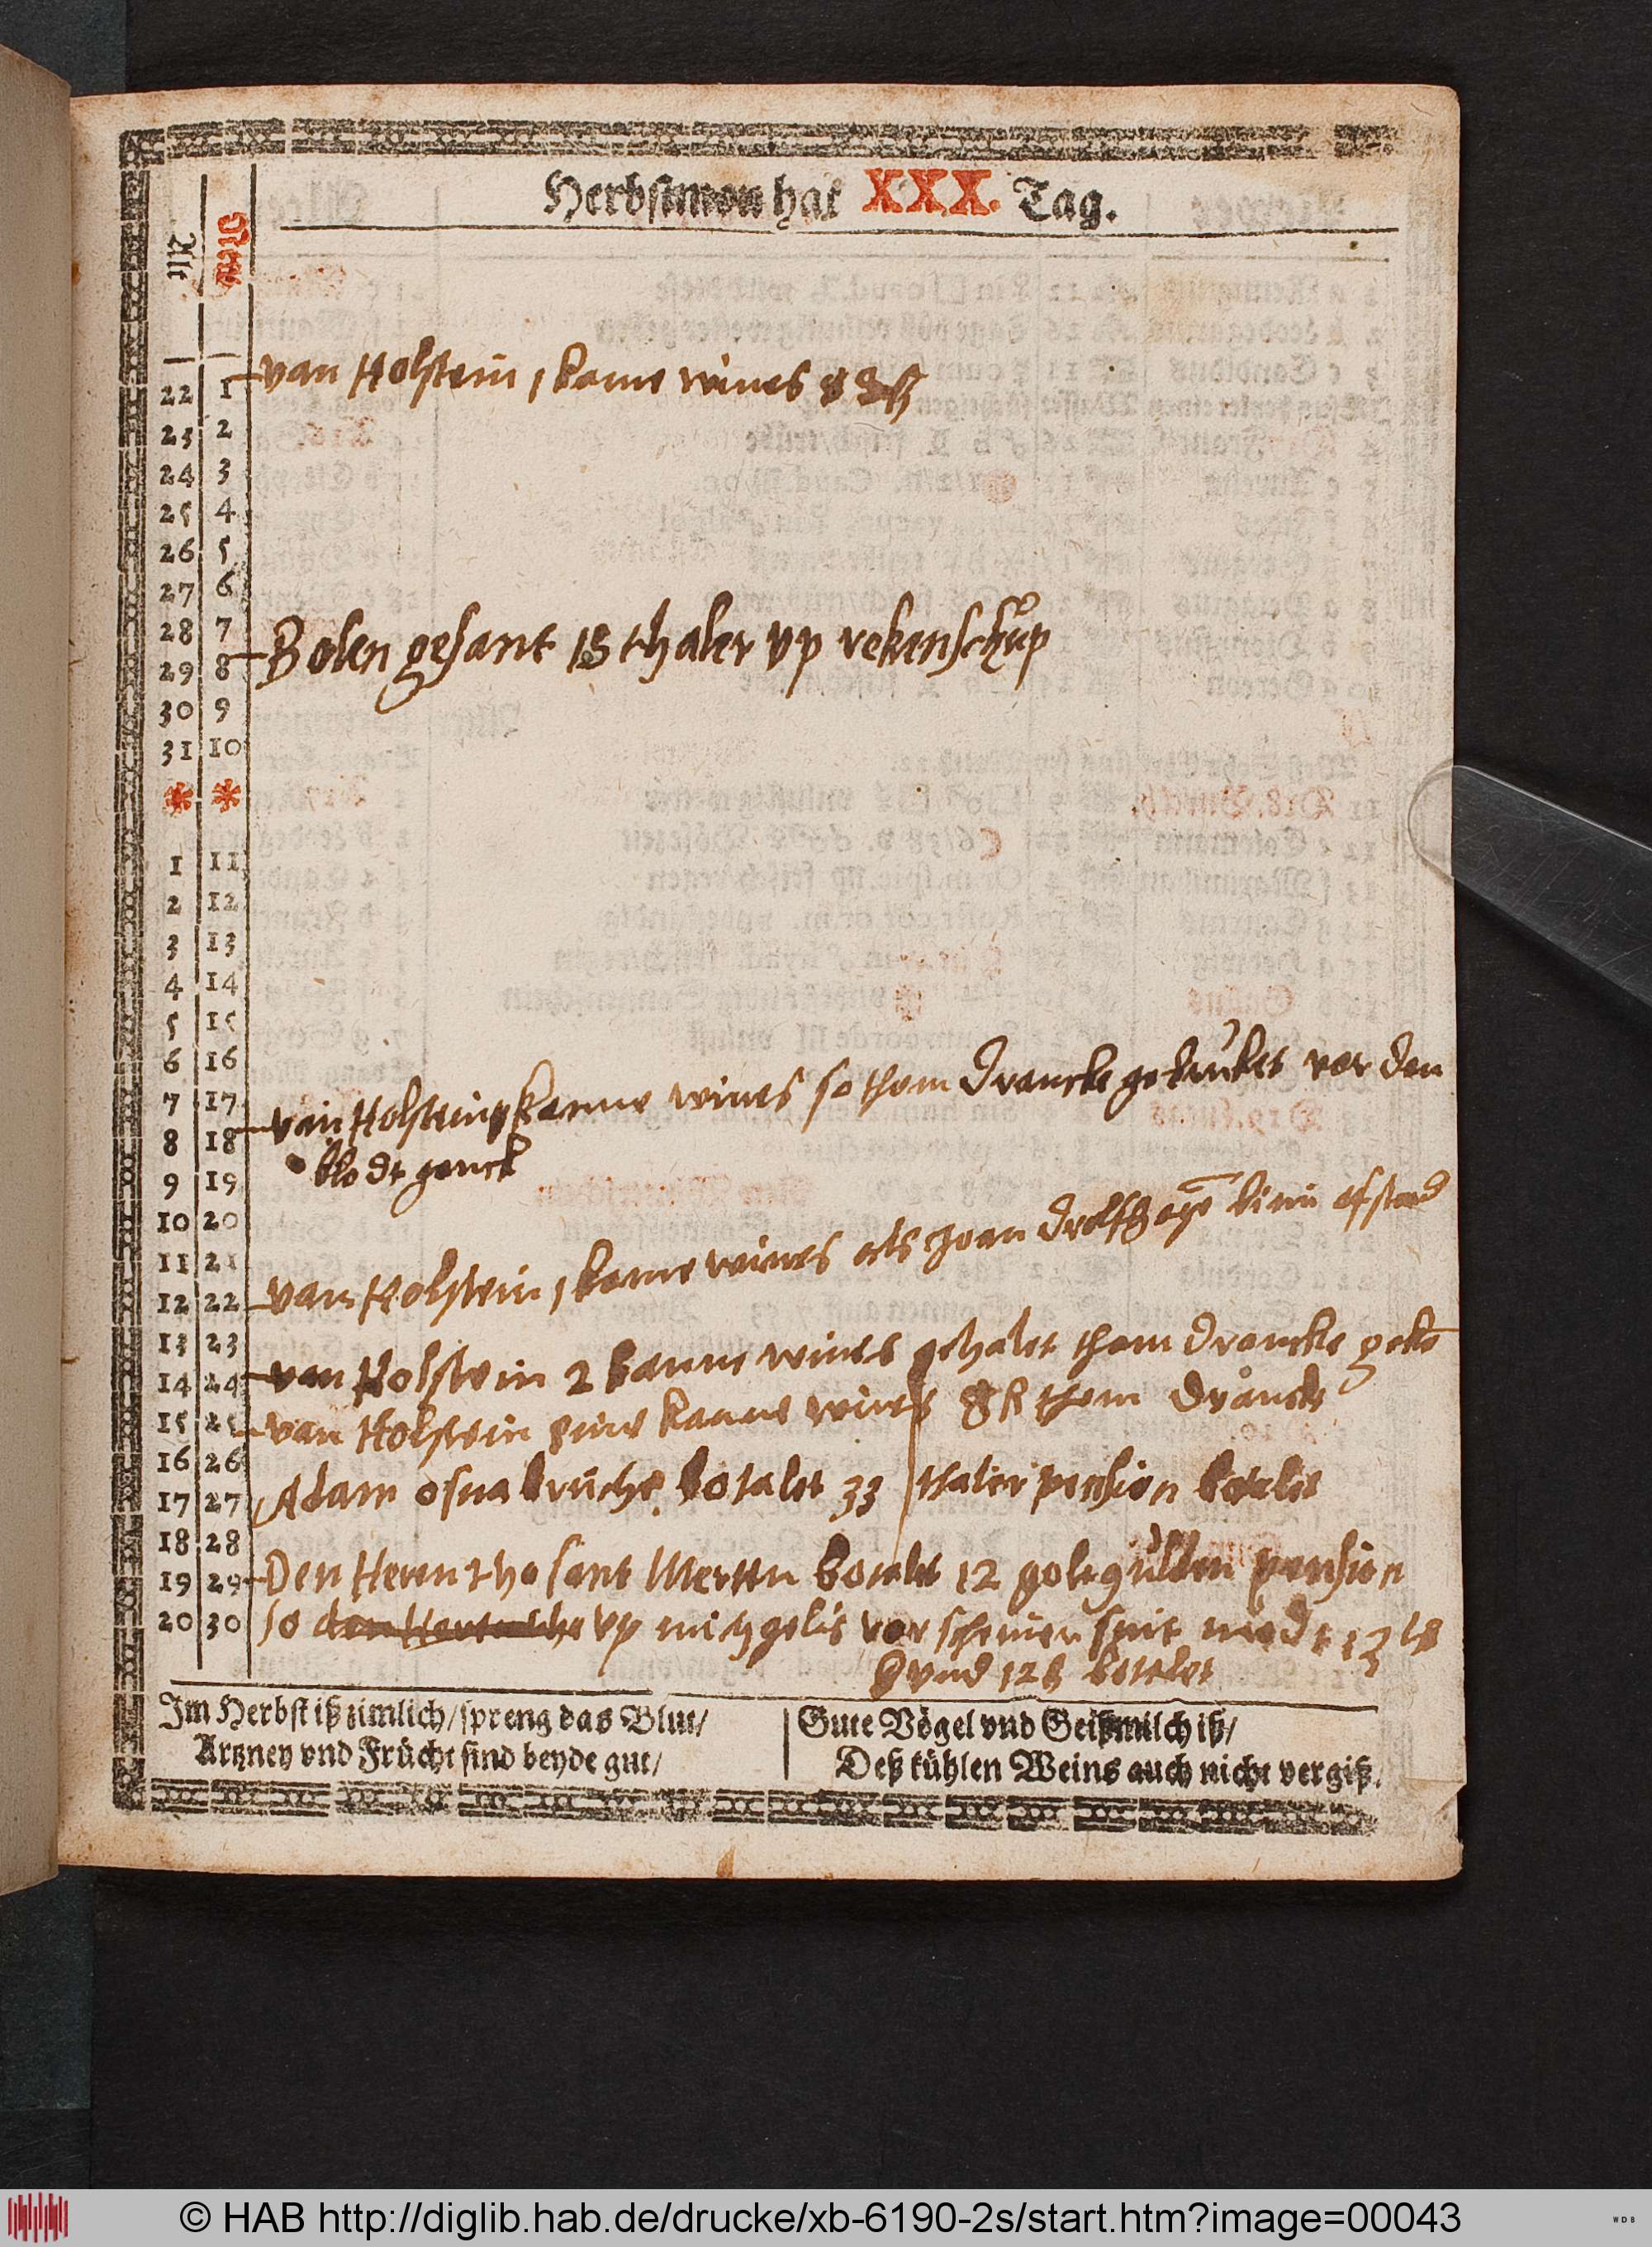 Herbstmon hat XXX. Tag.
Alt New
22 1 van Holstein 1 kanne wines 8
23 2
24 3
25 4
26 5
27 6
28 7
29 8 Bolen gesant 18 thaler vp rekenschup
30 9
31 10
* *
1 11
2 12
3 13
4 14
5 15
6 16
7 17
8 18 van Holstein kanne wines so thom drancke gebruket vor den
blodt ganck
9 19
10 20
11 21
12 22 van Holstein 1 kanne wines als Joan afstand
13 23
14 24 van Holstein 2 kanne wines gehalet thom drancke
15 25 van Holstein eine kanne wines thom drancke
16 26
17 27 Adam osnabruche botalet 33 thaler pension botalet
18 28
19 29 Den Heren tho sant Merten botalet 12 golt gulden pension
20 30 so vp michgelis vor schenen
vnd 12 ß botalet
Im Herbst iß zimlich/ spreng das Blut/
Artzney vnd Frücht sind beyde gut/
Gute Vögel vnd Geißmilch iß/
Deß kühlen Weins auch nicht vergiß.
© HAB http://diglib.hab.de/drucke/xb-6190-2s/start.htm?image=00043
WDB